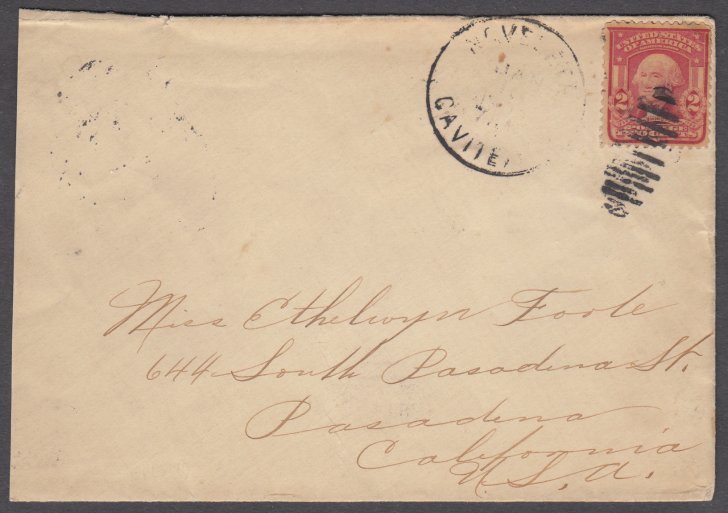 NOVELETA
JAN
CAVITE
UNITED STATES
OF AMERICA
2 2
Miss Ethelwyn Foote
644 South Pasadena St.
Pasadena
California
U.S.A.